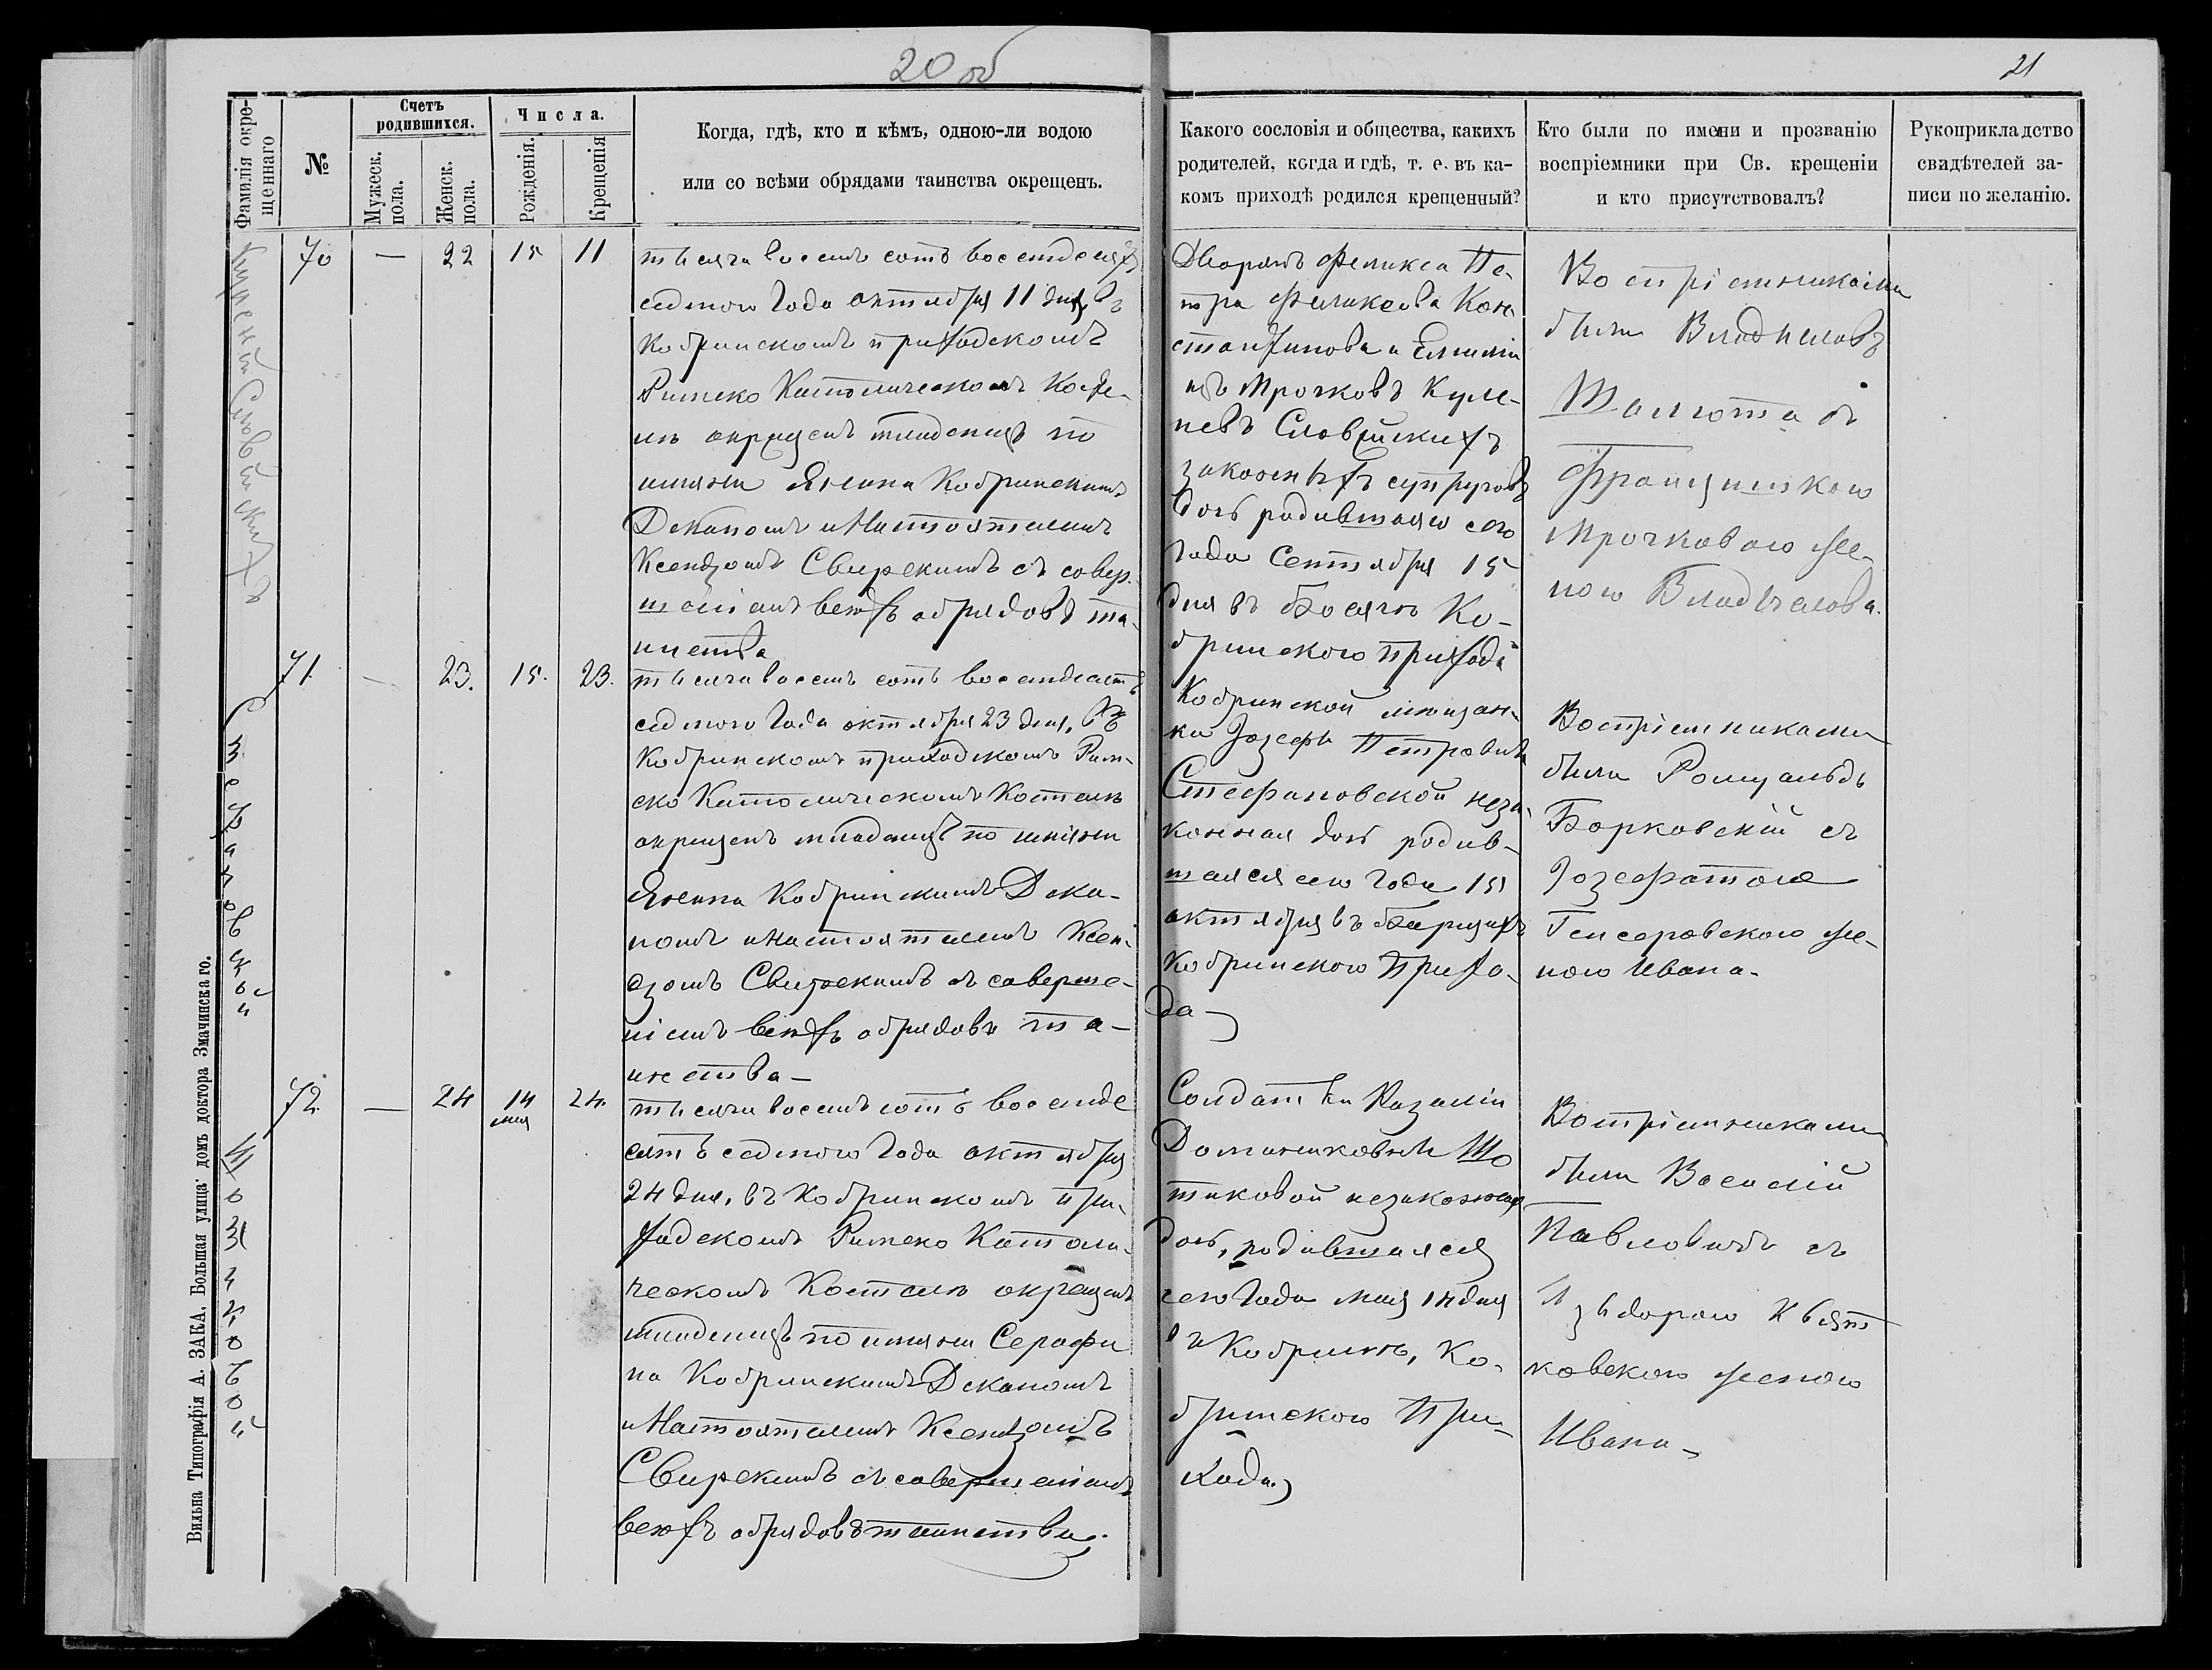 20 об
21
Фамилія окре-
щеннаго
№
Счетъ
родившихся.
Мужеск.
пола.
Женск.
пола.
Числа.
Рожденія.
Крещенія
Когда, гдѣ, кто и кѣмъ, одною-ли водою
или со всѣми обрядами таинства окрещенъ.
Какого сословія и общества, какихъ
родителей, когда и гдѣ, т. е. въ ка-
комъ приходѣ родился крещенный?
Кто были по имени и прозванію
воспріемники при Св. крещеніи
и кто присутствовалъ?
Рукоприкладство
свидѣтелей за-
писи по желанію.
70 — 22 15 11
тысяча восемь сотъ восемдесятъ
седмого года октября 11 дня, въ
Кобринскомъ приходскомъ
Римско Католическомъ Косте-
лѣ окрещенъ младенецъ по
имяни Янина Кобринскимъ
Деканомъ и Настоятелемъ
Ксендзомъ Свирскимъ съ совер-
шеніемъ всѣхъ обрядовъ та-
инства
Дворянъ Феликса Пе-
тра Феликсова Кон
стантинова и Емиліи
изъ Мрочковъ
законныхъ супруговъ
дочь родившаяся сего
года Сентября 15
дня въ Ко-
бринского прихода
Воспріемниками
были Владиславъ
съ
Францишкою
Мрочковою же-
ною Владислава.
71. — 23. 15. 23.
тысяча восемь сотъ восемдесятъ
седмого года октября 23 дня, въ
Кобринскомъ приходскомъ Рим-
ско Католическомъ Костелѣ
окрещенъ младенецъ по имяни
Янина Кобринскимъ Дека-
номъ и Настоятелемъ Ксен-
дзомъ Свирскимъ съ соверше-
ніемъ всѣхъ обрядовъ та-
инства —
Стефановской
Кобринской мѣщан-
ки Іозефы Петровны
Стефановской неза-
конная дочь родив-
шаяся сего года 15
октября въ
Кобринского прихо-
да
Воспріемниками
были Ромуальдъ
Борковскій съ
Іозефатою
же-
ною Ивана.
72. — 24 14
мая
24.
тысяча восемь сотъ восемде
сятъ седмого года октября
24 дня, въ Кобринскомъ при-
ходскомъ Римско Католи-
ческомъ Костелѣ окрещенъ
младенецъ по имяни Серафи
на Кобринскимъ Деканомъ
и Настоятелемъ Ксендзомъ
Свирскимъ съ совершеніемъ
всѣхъ обрядовъ таинства.
Солдатки Казиміи
Доминиковны
незаконная
дочь, родившаяся
сего года мая 14 дня
въ Кобринѣ, Ко-
бринского при-
хода.
Воспріемниками
были Василій
Павловичъ съ
Изыдорою Квят
ковскою женою
Ивана
Вильна Типографія А. ЗАКА, Большая улица домъ доктора Змачинскаго.